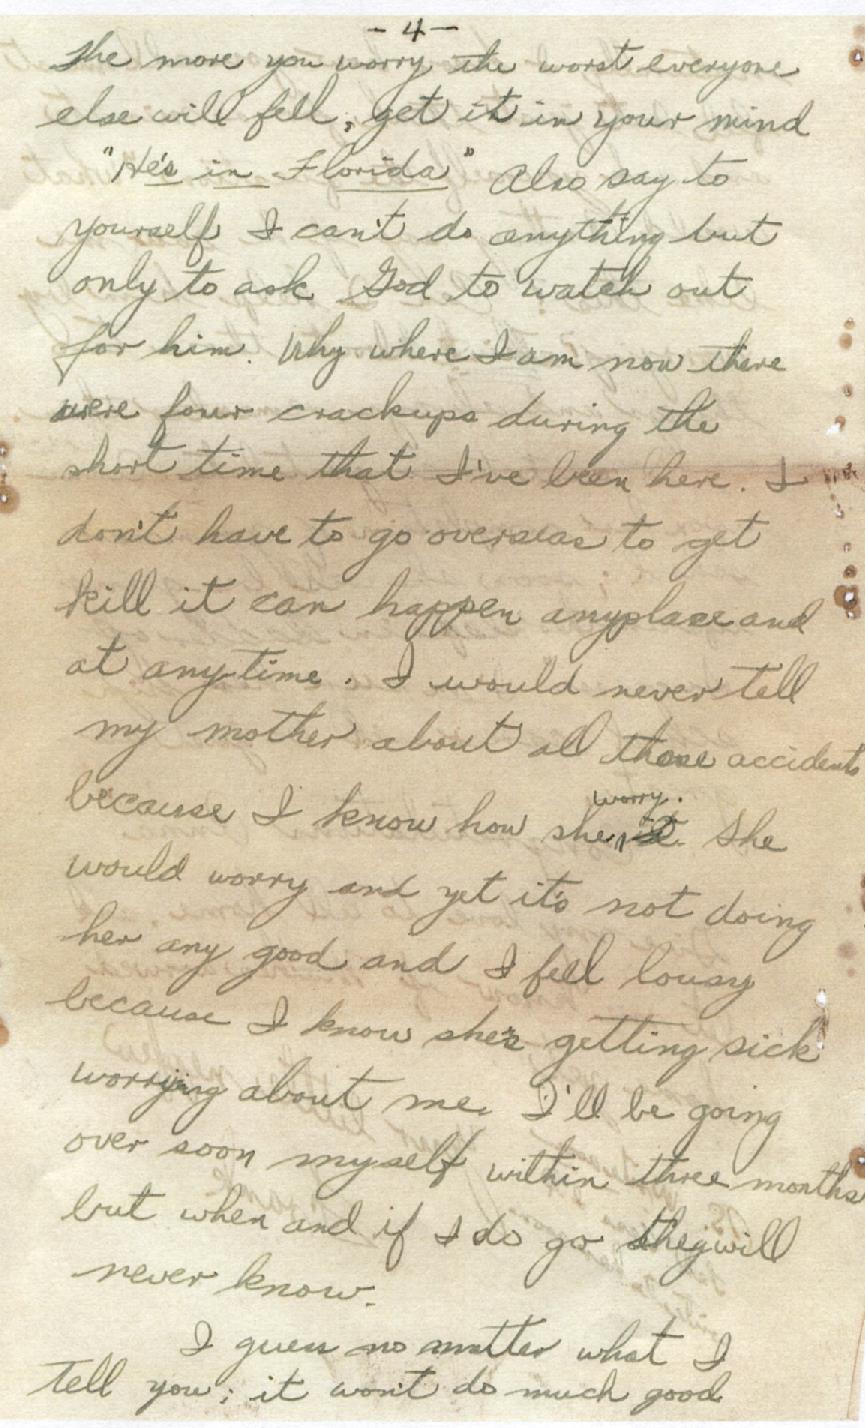 - 4 -
The more you worry the worst everyone
else will fell, get it in your mind
"He's in Florida" Also say to
yourself I can't do anything but
only to ask God to watch out
for him. Why where I am now there
were four crackups during the
short time that I've been here. I
don't have to go overseas to get
kill it can happen anyplace and
at anytime. I would never tell
my mother about all those accidents
because I know how she worry. She
would worry and yet it's not doing
her any good and I feel lousy
because I know she's getting sick
worrying about me. I'll be going
over soon myself within three months
but when and if I do go they will
never know.
I guess no matter what I
tell you; it won't do much good